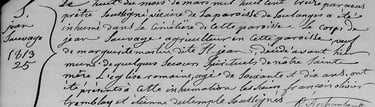 S.
Jean
Sauvage
1813
25
Le huit du mois de mars mil huit cent treize par nous
prêtre soussigné vicaire de la paroisse de Soulanges a été
inhumé dans le Cimetière de cette paroisse le corps de
jean Sauvage agriculteur en cette paroisse veuf
de marguerite décédé avant hier
muni de quelques secours Spirituels de notre Sainte
mère l'église romaine, agé de soixante et dix ans, ont
été présents à cette inhumation les Sieurs françois
tremblay et étienne soussignés